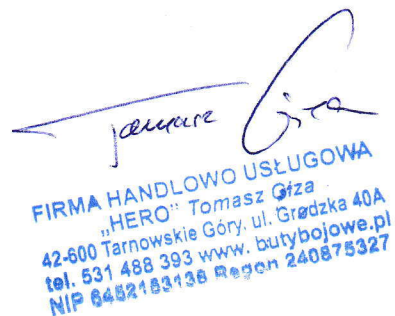 Tomasz Giza
FIRMA HANDLOWO USŁUGOWA
„HERO” Tomasz Giza
42-600 Tarnowskie Góry, ul. Grodzka 40A
tel. 531 488 393 www. butybojowe.pl
NIP 6452183136 Regon 240875327